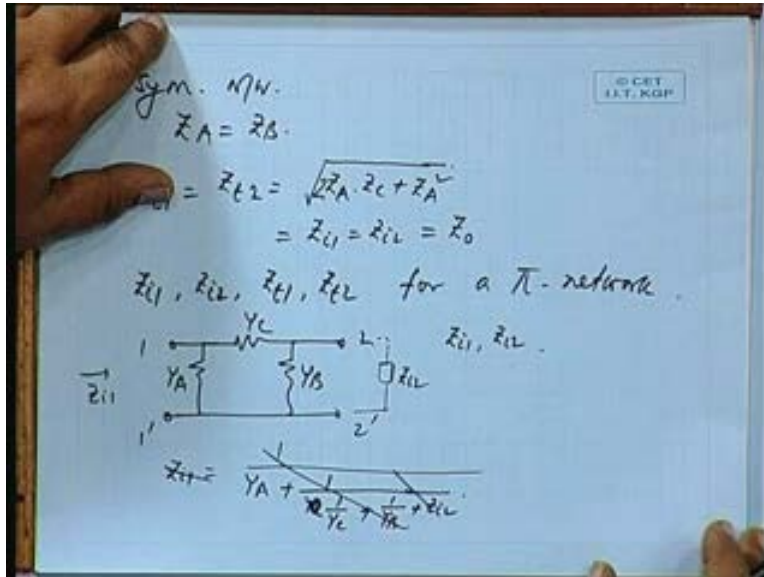 Sym. N/w.
© CET
I.I.T. KGP
Z_A = Z_B.
= Z_t2 = √(2Z_A . Z_C + Z_A²)
= Z_i1 = Z_i2 = Z_0
Z_i1, Z_i2, Z_t1, Z_t2 for a π-network.
1 Y_C 2 Z_i1, Z_i2.
Z_i1 Y_A Y_B Z_i2
1' 2'
Z_i1 = 1
Y_A + 1
1/Y_C + + Z_i2